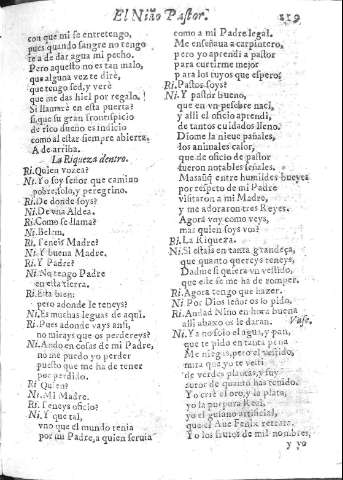 El Niño Pastor. 219
con que mi se entretengo,
pues quando sangre no tengo
te a de dar agua mi pecho.
Pero aquesto no es tan malo,
que alguna vez te dirè,
que tengo sed, y verè
que me das hiel por regalo.
Si llamarè en esta puerta?
si, que su gran frontispicio
de rico dueño es indicio
como al estar siempre abierta.
A de arriba.
La Riqueza dentro.
Ri. Quien vozea?
Ni. Yo soy señor que camino
pobre, solo, y peregrino.
Ri. De donde soys?
Ni. De vna Aldea.
Ri. Como se llama?
Ni. Belen.
Ri. Teneis Madre?
Ni. Y buena Madre.
Ri. Y Padre?
Ni. No tengo Padre
en esta tierra.
Ri. Està bien;
pero adonde le teneys?
Ni. Es muchas leguas de aqui.
Ri. Pues adonde vays ansi,
no mirays que os perdereys?
Ni. Ando en cosas de mi Padre,
no me puedo yo perder
puesto que me ha de tener
por perdido.
Ri. Quien?
Ni. Mi Madre.
Ri. Teneys oficio?
Ni. Y que tal,
vno que el mundo tenia
por mi Padre, a quien seruia
como a mi Padre legal.
Me enseñaua a carpintero,
pero yo aprendi a pastor
para curtirme mejor
para los tuyos que espero.
Ri. Pastor soys?
Ni. Y pastor bueno,
que en vn pesebre naci,
y alli el oficio aprendi,
de tantos cuidados lleno.
Diome la nieue pañales,
los animales calor,
que de oficio de pastor
fueron notables señales.
Mas aunq̃ entre humildes bueyes
por respeto de mi Padre
visitaron a mi Madre,
y me adoraron tres Reyes.
Agora voy como veys,
mas quien soys vos?
Ri. La Riqueza.
Ni. Si estais en tanta grandeça,
que quanto quereys teneys,
Dadme siquiera vn vestido,
que este se me ha de romper.
Ri. Agora tengo que hazer.
Ni Por Dios señor os lo pido.
Ri. Andad Niño en hora buena
alli abaxo os le daran. Vase.
Ni. Ya no solo el agua, y pan,
que te pido en tanta pena
Me niegas, pero el vestido,
mira que yo te vesti
de verdes plantas, y fuy
autor de quanto has tenido.
Yo criè el oro, y la plata,
yo la purpura Real,
yo el gusano artificial,
que el Aue Fenix retrata.
Yo los frutos de mil nombres,
y yo